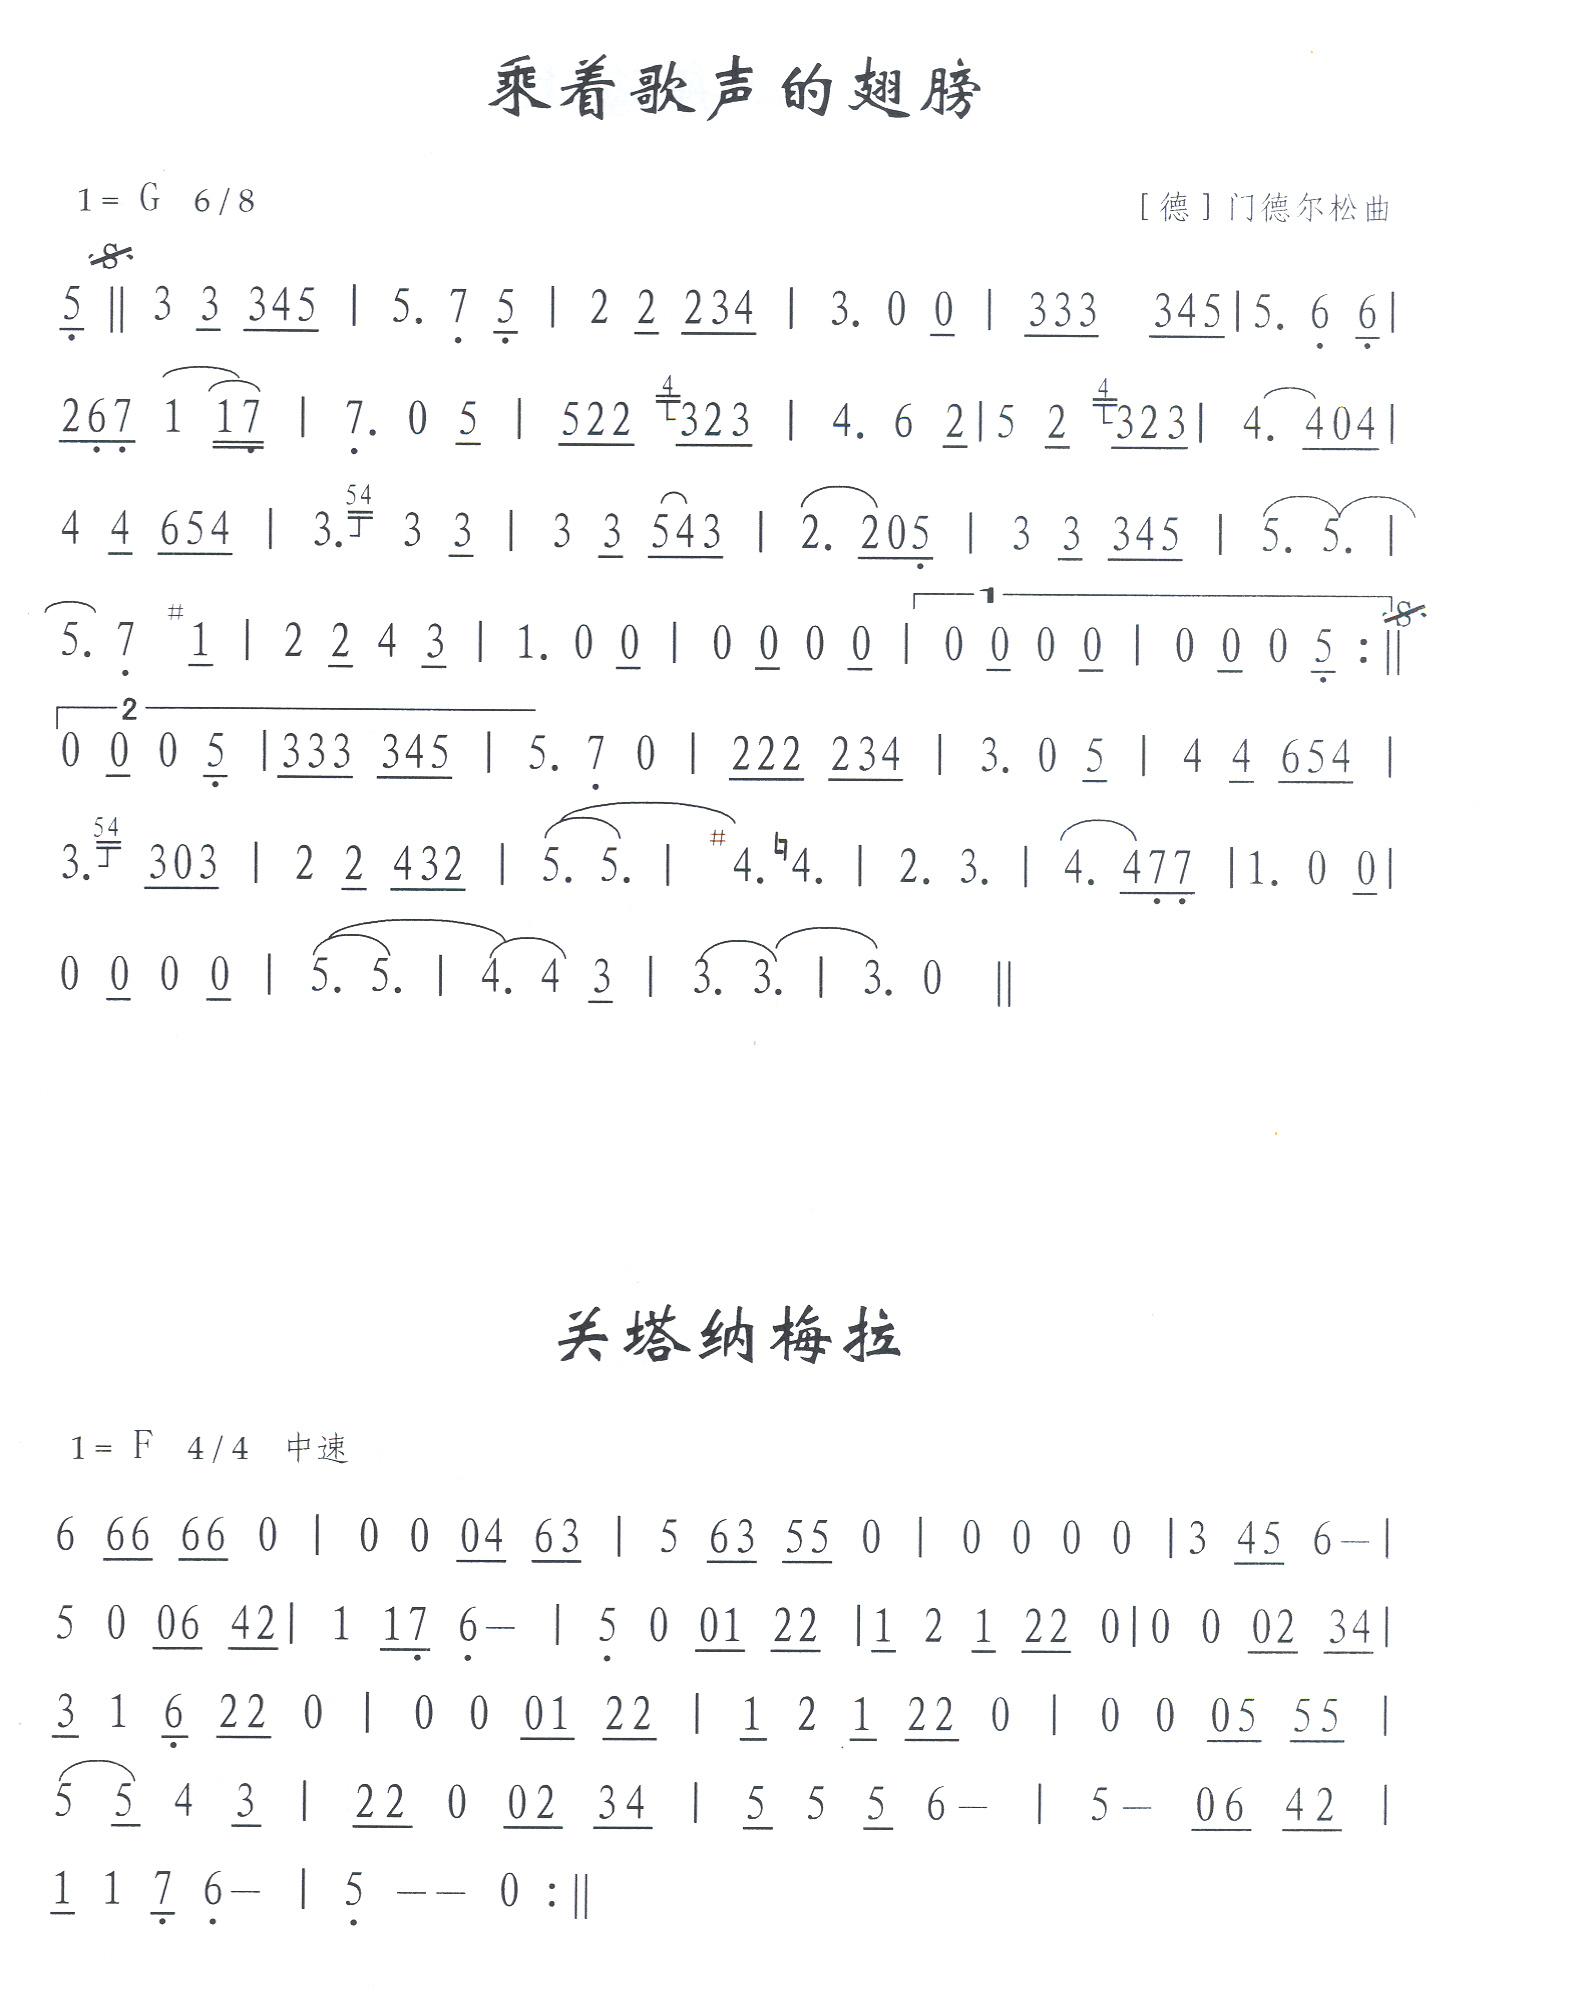 乘着歌声的翅膀
1= G 6/8 [德]门德尔松曲
S
5 || 3 3 345 | 5. 7 5 | 2 2 234 | 3. 0 0 | 333 345|5. 6 6|
4 4
267 1 17 | 7. 0 5 | 522 323 | 4. 6 2|5 2 323| 4. 404|
54
4 4 654 | 3. 3 3 | 3 3 543 | 2. 205 | 3 3 345 | 5. 5. |
1 S
5. 7 #1 | 2 2 4 3 | 1. 0 0 | 0 0 0 0 | 0 0 0 0 | 0 0 0 5 :||
2
0 0 0 5 |333 345 | 5. 7 0 | 222 234 | 3. 0 5 | 4 4 654 |
54
3. 303 | 2 2 432 | 5. 5. | #4. ♮4. | 2. 3. | 4. 477 |1. 0 0|
0 0 0 0 | 5. 5. | 4. 4 3 | 3. 3. | 3. 0 ||
关塔纳梅拉
1= F 4/4 中速
6 66 66 0 | 0 0 04 63 | 5 63 55 0 | 0 0 0 0 |3 45 6—|
5 0 06 42| 1 17 6— | 5 0 01 22 |1 2 1 22 0|0 0 02 34|
3 1 6 22 0 | 0 0 01 22 | 1 2 1 22 0 | 0 0 05 55 |
5 5 4 3 | 22 0 02 34 | 5 5 5 6— | 5— 06 42 |
1 1 7 6— | 5 —— 0 :||